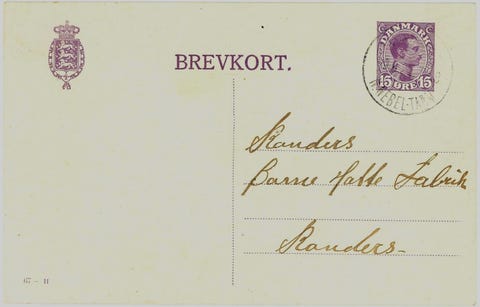 BREVKORT.
DANMARK
15 ØRE 15
Randers
Barre Hatte Fabrik
Randers-
67 - H